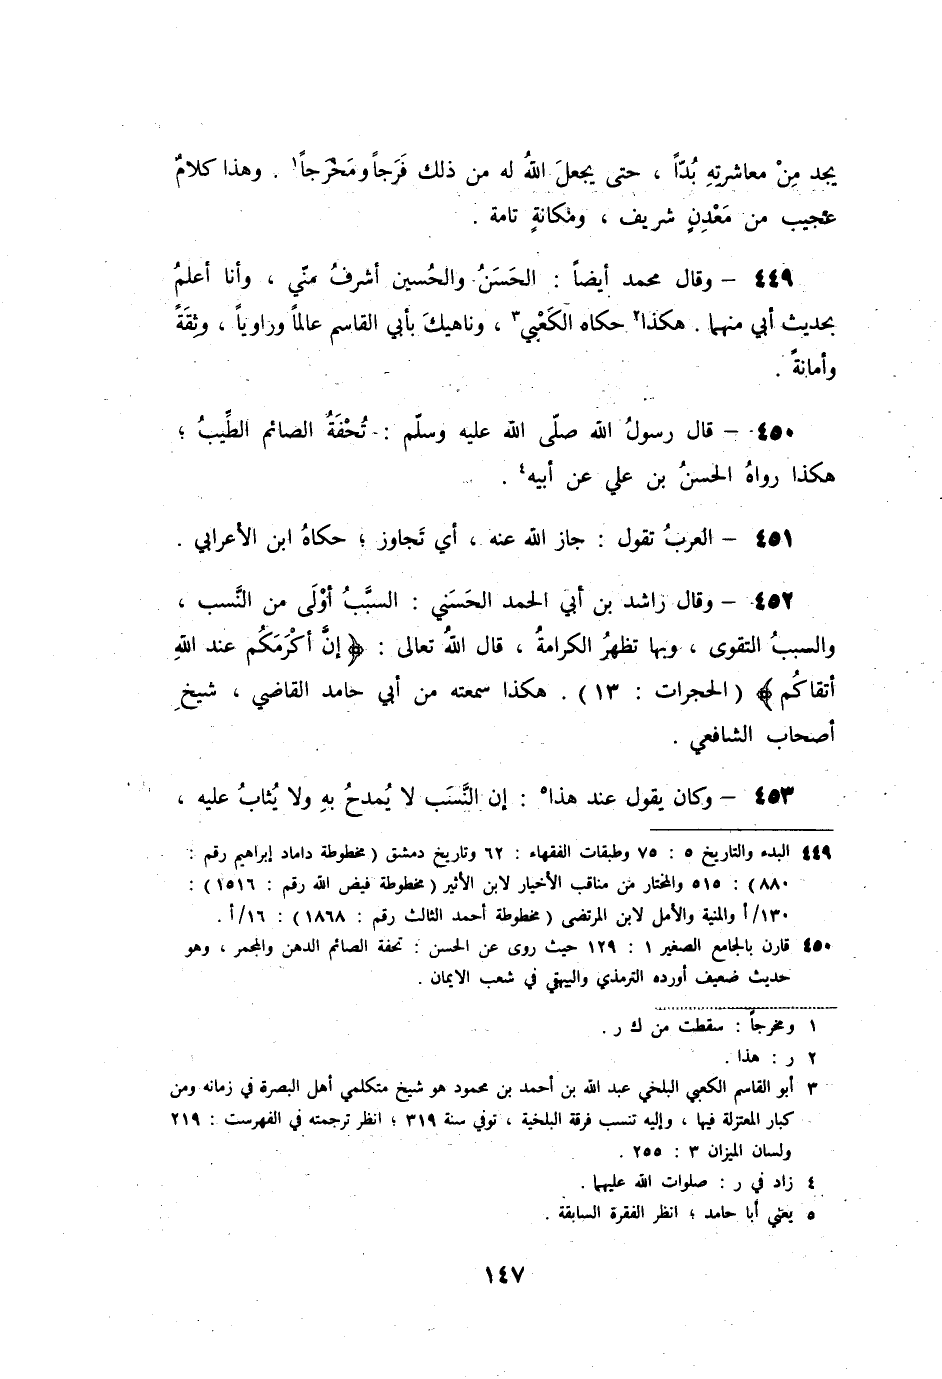 يجد مِنْ معاشرتِهِ بُدّاً ، حتى يجعلَ اللهُ له من ذلك فَرَجاً ومَخْرَجاً١ . وهذا كلامٌ
عجيب من مَعْدِنٍ شريف ، ومكانةٍ تامة .
٤٤٩ – وقال محمد أيضاً : الحَسَنُ والحُسين أشرفُ منّي ، وأنا أعلمُ
بحديث أبي منهما . هكذا٢ حكاه الكَعْبي٣ ، وناهيكَ بأبي القاسم عالماً وراوياً ، وثِقَةً
وأمانةً .
٤٥٠ – قال رسولُ الله صلّى الله عليه وسلّم : تُحْفَةُ الصائم الطِّيبُ ؛
هكذا رواهُ الحسنُ بن علي عن أبيه٤ .
٤٥١ – العربُ تقول : جاز الله عنه ، أي تَجاوز ؛ حكاهُ ابن الأعرابي .
٤٥٢ – وقال راشد بن أبي الحمد الحَسَني : السبَّبُ أوْلَى من النَّسب ،
والسببُ التقوى ، وبها تظهرُ الكرامةُ ، قال اللهُ تعالى : ﴿ إنَّ أكْرَمَكُم عند اللهِ
أتقاكُم ﴾ ( الحجرات : ١٣ ) . هكذا سمعته من أبي حامد القاضي ، شيخِ
أصحاب الشافعي .
٤٥٣ – وكان يقول عند هذا٥ : إن النَّسَب لا يُمدحُ بهِ ولا يُثابُ عليه ،
٤٤٩ البدء والتاريخ ٥ : ٧٥ وطبقات الفقهاء : ٦٢ وتاريخ دمشق ( مخطوطة داماد إبراهيم رقم :
٨٨٠ ) : ٥١٥ والمختار من مناقب الأخيار لابن الأثير ( مخطوطة فيض الله رقم : ١٥١٦ ) :
١٣٠/أ والمنية والأمل لابن المرتضى ( مخطوطة أحمد الثالث رقم : ١٨٦٨ ) : ١٦/أ .
٤٥٠ قارن بالجامع الصغير ١ : ١٢٩ حيث روى عن الحسن : تحفة الصائم الدهن والمجمر ، وهو
حديث ضعيف أورده الترمذي والبيهقي في شعب الايمان .
١ ومخرجاً : سقطت من ك ر .
٢ ر : هذا .
٣ أبو القاسم الكعبي البلخي عبد الله بن أحمد بن محمود هو شيخ متكلمي أهل البصرة في زمانه ومن
كبار المعتزلة فيها ، وإليه تنسب فرقة البلخية ، توفي سنة ٣١٩ ؛ انظر ترجمته في الفهرست : ٢١٩
ولسان الميزان ٣ : ٢٥٥ .
٤ زاد في ر : صلوات الله عليهما .
٥ يعني أبا حامد ؛ انظر الفقرة السابقة .
١٤٧